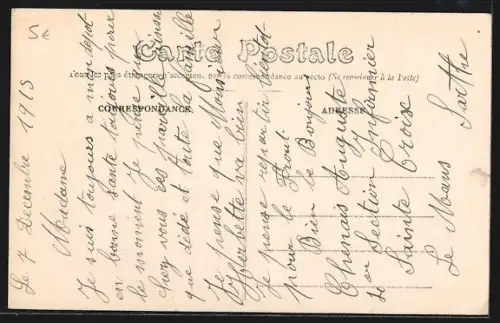 5c
Carte Postale
Tous les pays étrangers n'acceptent pas la correspondance au recto (Se renseigner à la Poste)
CORRESPONDANCE
ADRESSE
Le 7 Decembre 1915
Madame
Je suis toujours a mon depot
en bonne Sante toujours pour
le moment Je pense que
chez vous ces pareille Ainsi
que dédé et toute la famille
Je pense que Monsieur
va bien
Je pense repartir bientot
pour le Front.
Bien le Bonjour
Auguste
Section Infirmier
Sainte Croix
Le Mans Sarthe